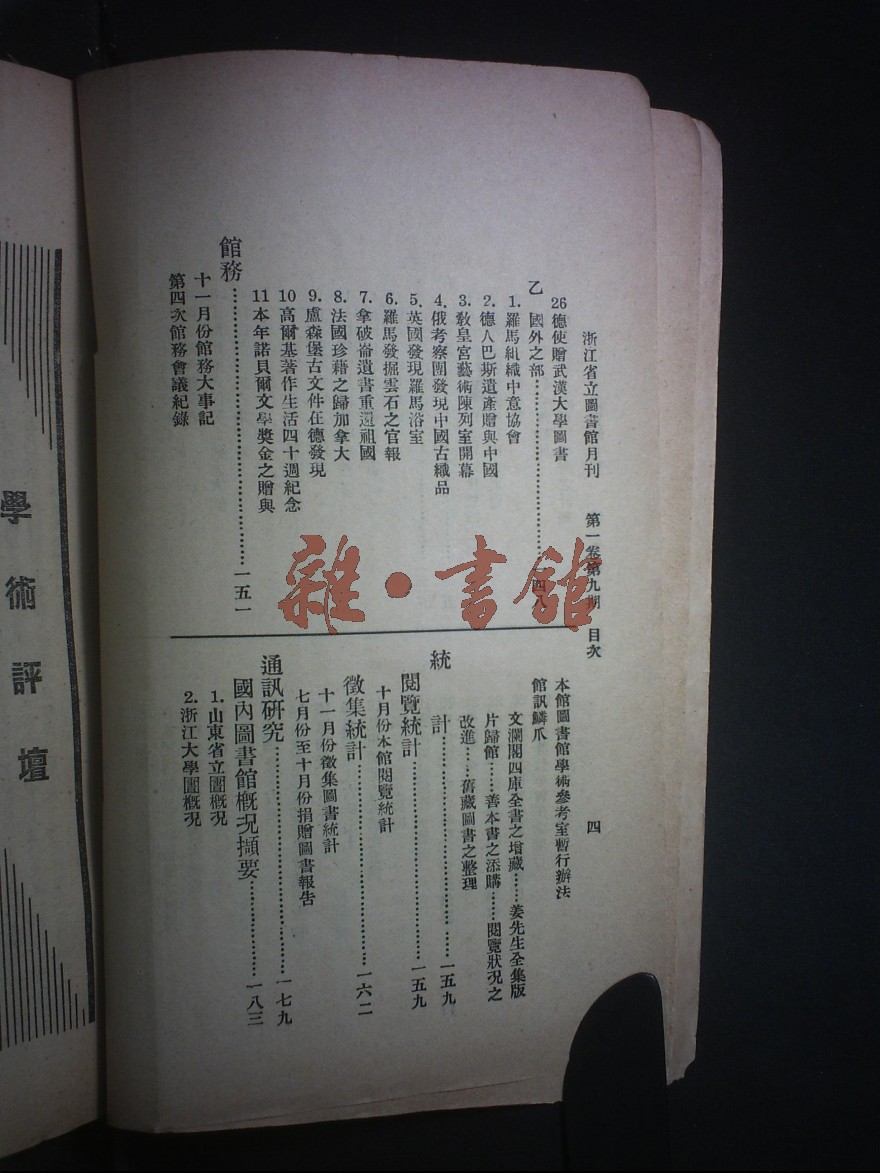 浙江省立圖書館月刊　第一卷第九期　目次　四
26德使贈武漢大學圖書
乙　國外之部……一四八
1. 羅馬組織中意協會
2. 德人巴斯遺產贈與中國
3. 敎皇宮藝術陳列室開幕
4. 俄考察團發現中國古織品
5. 英國發現羅馬浴室
6. 羅馬發掘雲石之官報
7. 拿破崙遺書重還祖國
8. 法國珍藉之歸加拿大
9. 盧森堡古文件在德發現
10高爾基著作生活四十週紀念
11本年諾貝爾文學獎金之贈與
館務……一五一
十一月份館務大事記
第四次館務會議紀錄
本館圖書館學術參考室暫行辦法
館訊鱗爪
文瀾閣四庫全書之增藏……姜先生全集版
片歸館……善本書之添購……閱覽狀况之
改進……舊藏圖書之整理
統　計……一五九
閱覽統計……一五九
十月份本館閱覽統計
徵集統計……一六二
十一月份徵集圖書統計
七月份至十月份捐贈圖書報告
通訊研究……一七九
國內圖書館槪况擷要……一八三
1. 山東省立圖槪况
2. 浙江大學圖槪况
學術評壇
雜·書館